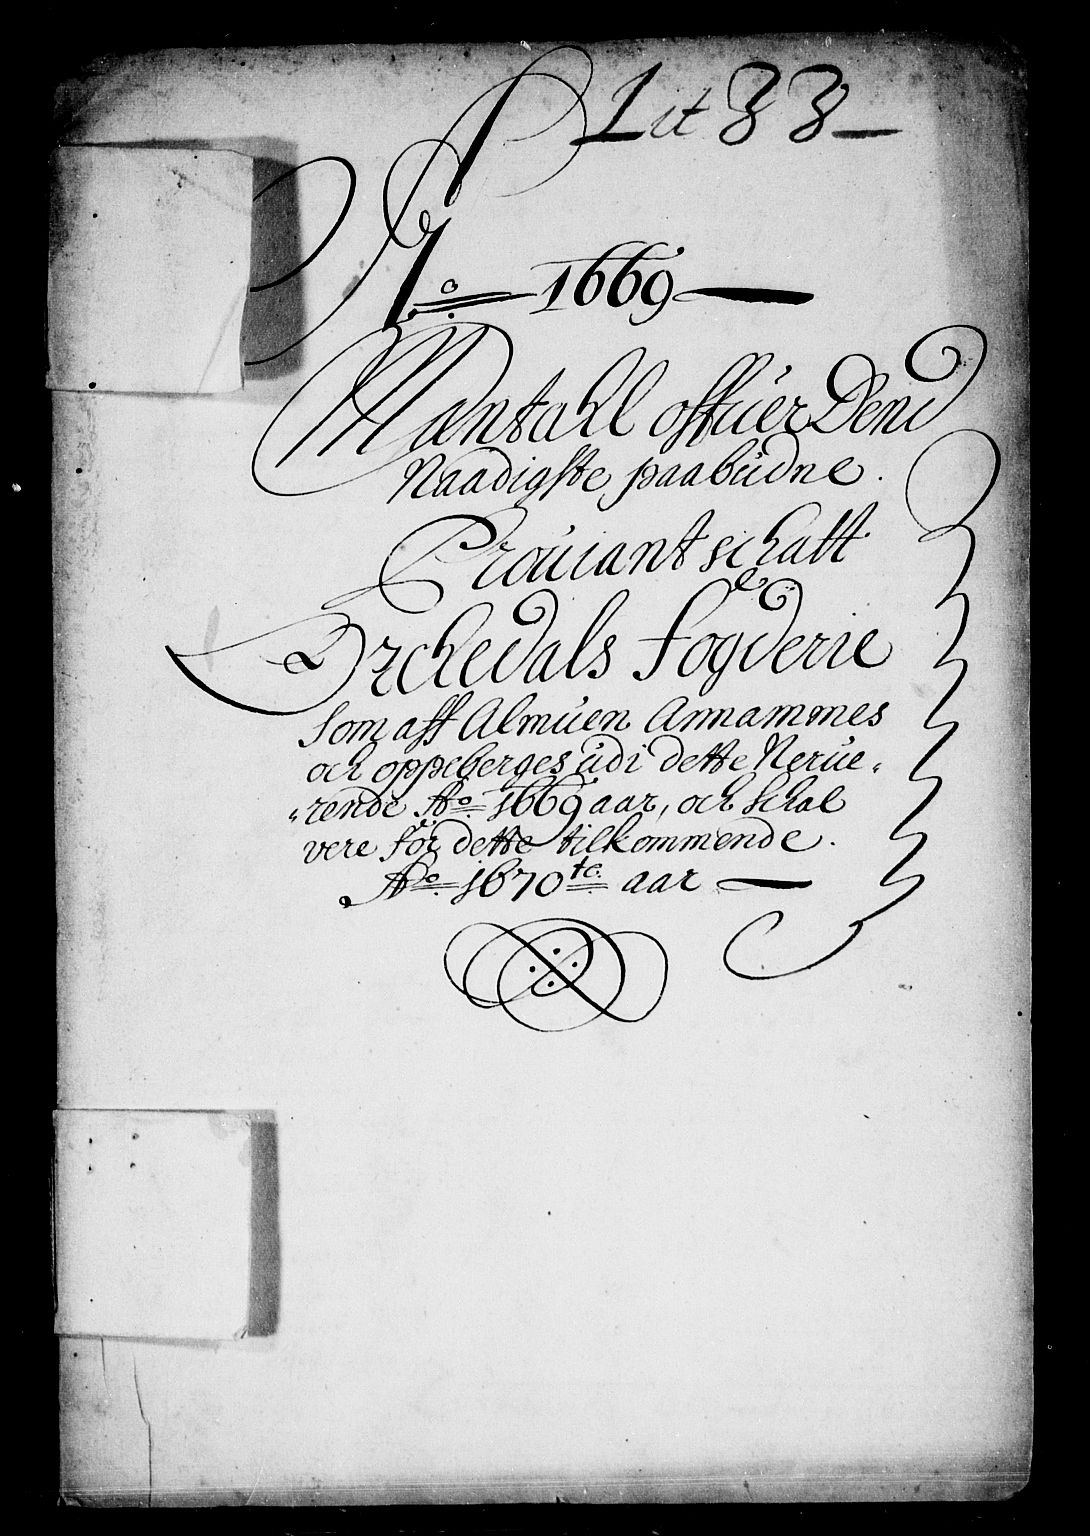 Lit 33
Ao 1669
Mantahl offuer Dend
Naadigste paabudne.
Prouiant schatt
Orchedals fogderie
som aff Almuen Annammes
och oppeberges udi dette Nerue„
„rende Ao 1669 aar, och schal
vere for dette tilkommende.
Ao 1670 te aar